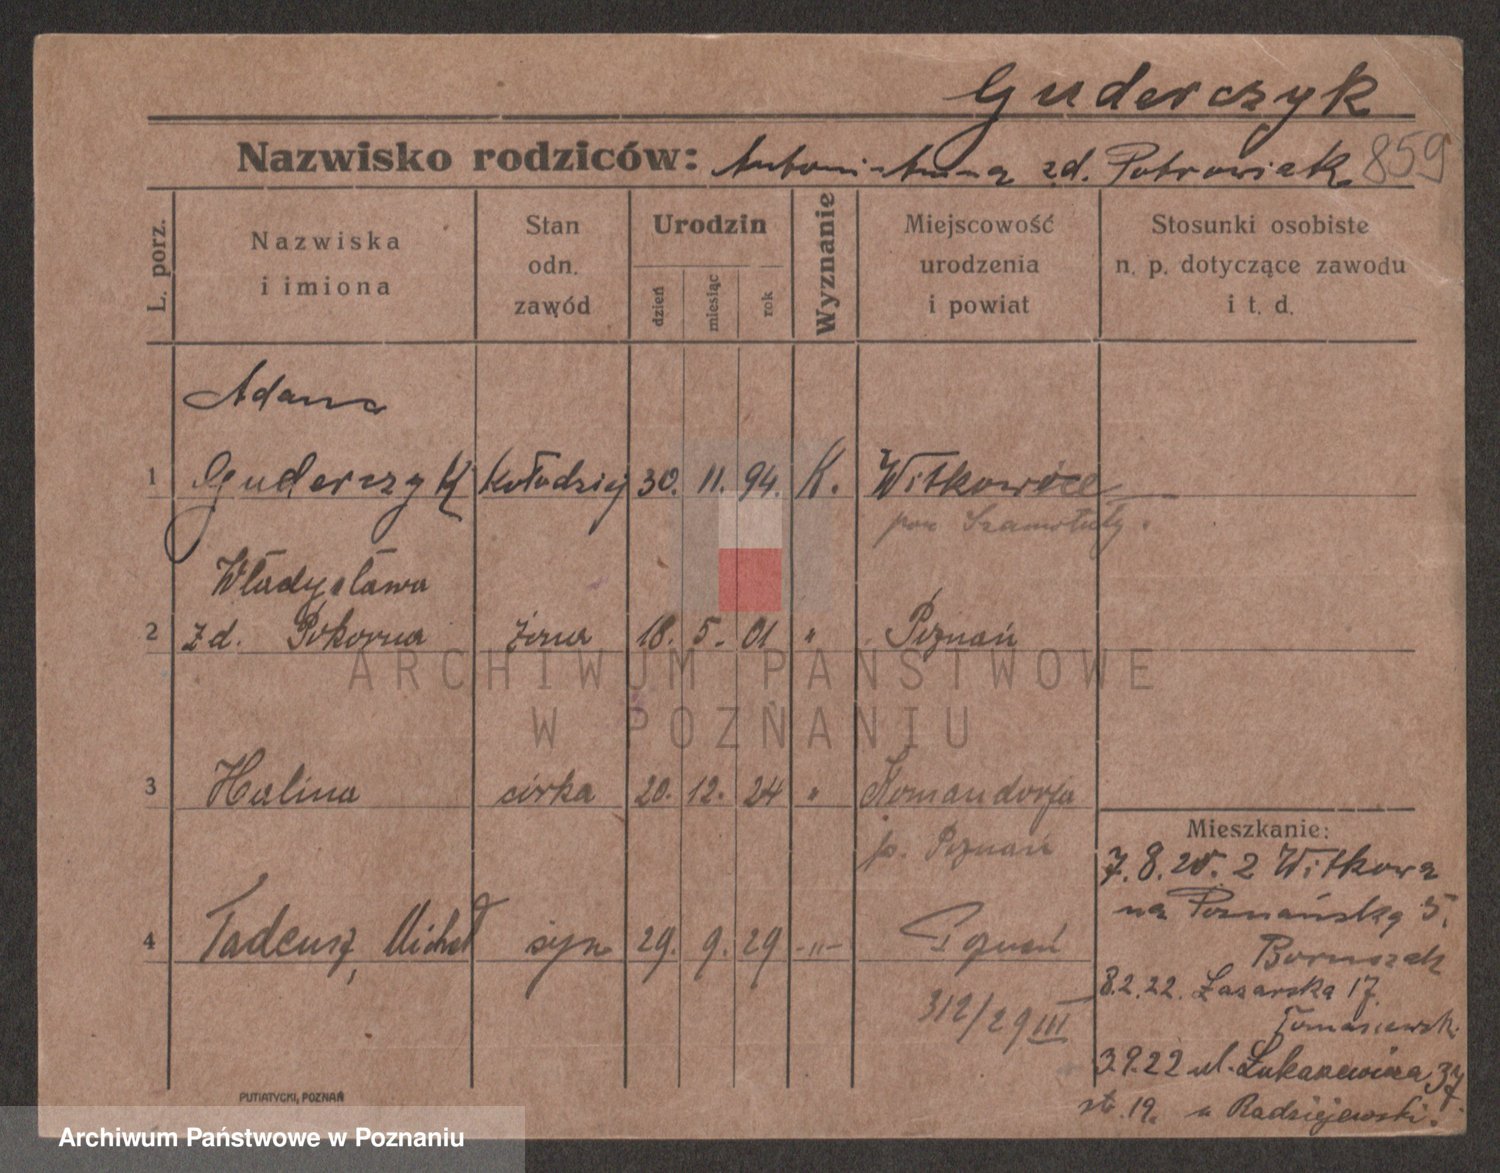 Guderczyk
Nazwisko rodziców: Antoni i Anna zd. Potrowiak 859
L. porz.
Nazwiska
i imiona
Stan
odn.
zawód
Urodzin
dzień
miesiąc
rok
Wyznanie
Miejscowość
urodzenia
i powiat
Stosunki osobiste
n. p. dotyczące zawodu
i t. d.
Adam
1 Guderczyk Kołodziej 30. 11. 94. K. Witkowice
pow Szamotuły.
Władysława
2 zd. Pokorna żona 18. 5. 01 " Poznań
ARCHIWUM PAŃSTWOWE
W POZNANIU
3 Halina córka 20. 12. 24 " Komandorja
p. Poznań
4 Tadeusz, Michał syn 29. 9. 29 -"- Poznań
312/29 III
Mieszkanie:
7.8.20. z Witkowa
na Poznańską 5.
Boruszak
8.2.22. Łazarska 17.
Tomaszewsk.
3.9.22 ul. Łukaszewicza 37
st. 19. u Radziejewski.
PUTIATYCKI, POZNAŃ
Archiwum Państwowe w Poznaniu